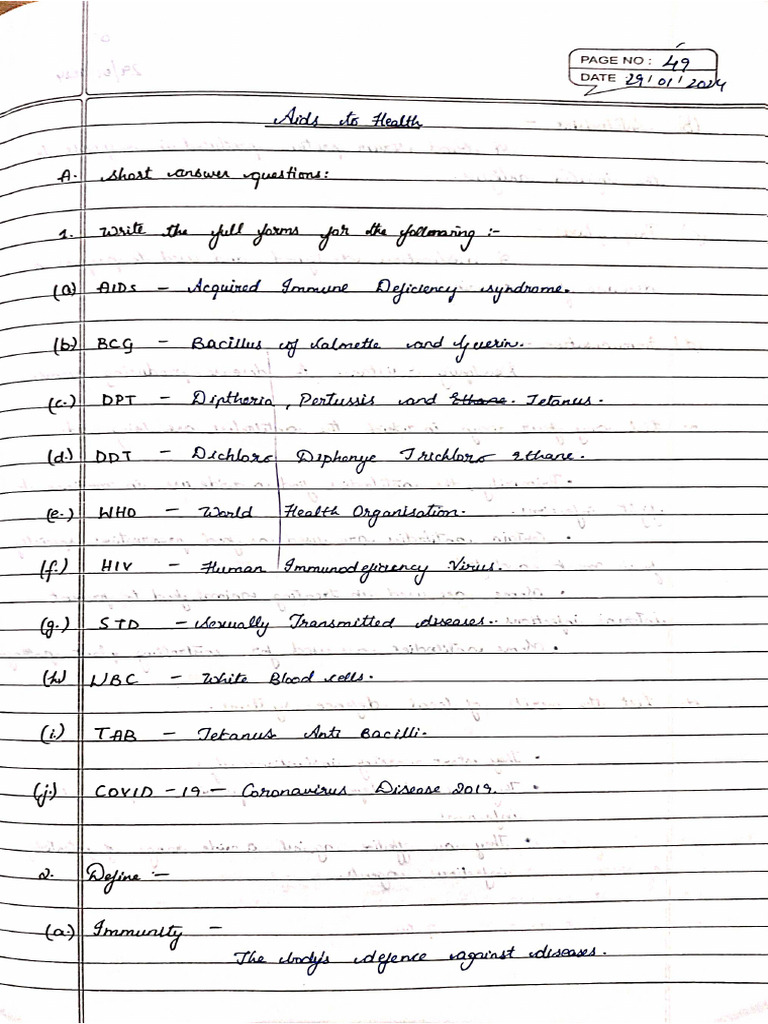 PAGE NO: 49
DATE 29/01/2024
Aids to Health
A. Short answer questions:
1. Write the full forms for the following :-
(a) AIDs - Acquired Immune Deficiency syndrome.
(b) BCG - Bacillus of Calmette and Guerin.
(c.) DPT - Diptheria, Pertussis and Ethane. Tetanus.
(d.) DDT - Dichloro Diphenye Trichloro Ethane.
(e.) WHO - World Health Organisation.
(f.) HIV - Human Immunodeficiency Virus.
(g.) STD - Sexually Transmitted diseases.
(h) WBC - White Blood cells.
(i.) TAB - Tetanus Anti Bacilli.
(j.) COVID-19 - Coronavirus Disease 2019.
2. Define :-
(a.) Immunity -
The body's defence against diseases.